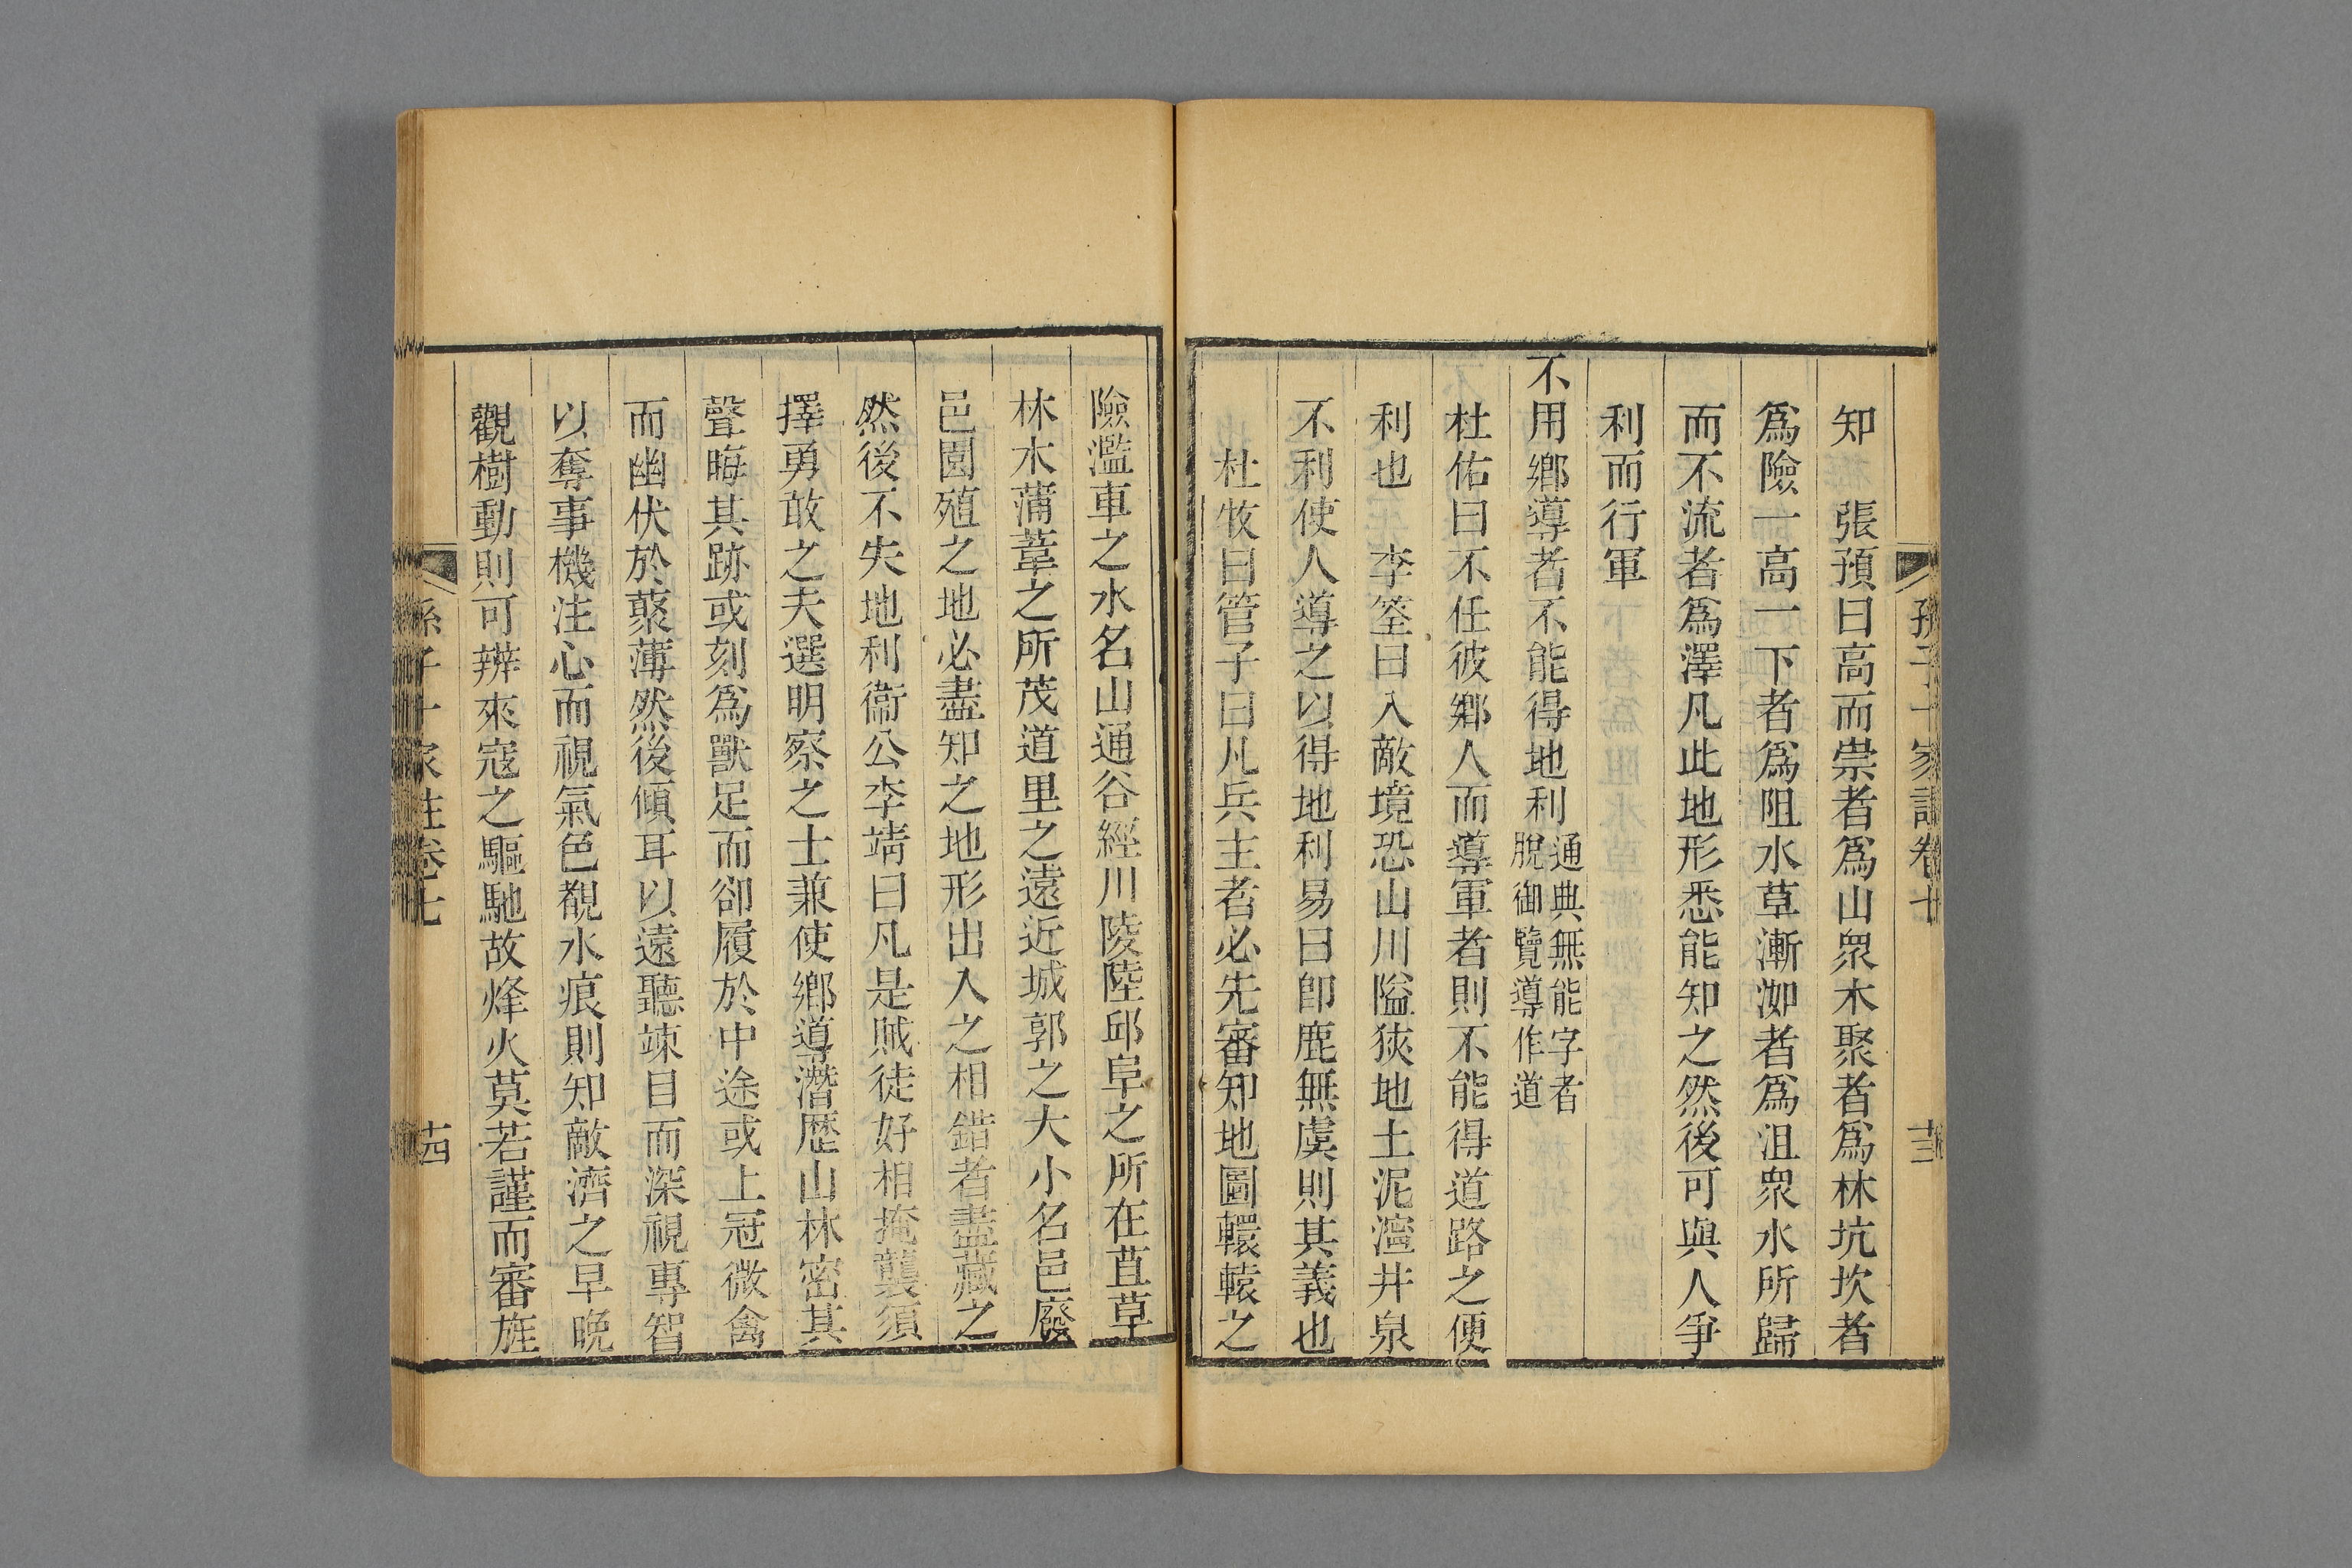 孫子十家註卷七
十三
知　張預曰高而崇者爲山衆木聚者爲林坑坎者
爲險一高一下者爲阻水草漸洳者爲沮衆水所歸
而不流者爲澤凡此地形悉能知之然後可與人爭
利而行軍
不用鄉導者不能得地利通典無能字者脫御覽導作道
杜佑曰不任彼鄉人而導軍者則不能得道路之便
利也　李筌曰入敵境恐山川隘狹地土泥濘井泉
不利使人導之以得地利易曰卽鹿無虞則其義也
杜牧曰管子曰凡兵主者必先審知地圖轘轅之
險濫車之水名山通谷經川陵陸邱阜之所在苴草
林木蒲葦之所茂道里之遠近城郭之大小名邑廢
邑園殖之地必盡知之地形出入之相錯者盡藏之
然後不失地利衞公李靖曰凡是賊徒好相掩襲須
擇勇敢之夫選明察之士兼使鄉導潛歷山林密其
聲晦其跡或刻爲獸足而卻履於中途或上冠微禽
而幽伏於蘙薄然後傾耳以遠聽竦目而深視專智
以奪事機注心而視氣色覩水痕則知敵濟之早晚
觀樹動則可辨來寇之驅馳故烽火莫若謹而審旌
孫子十家註卷七
十四